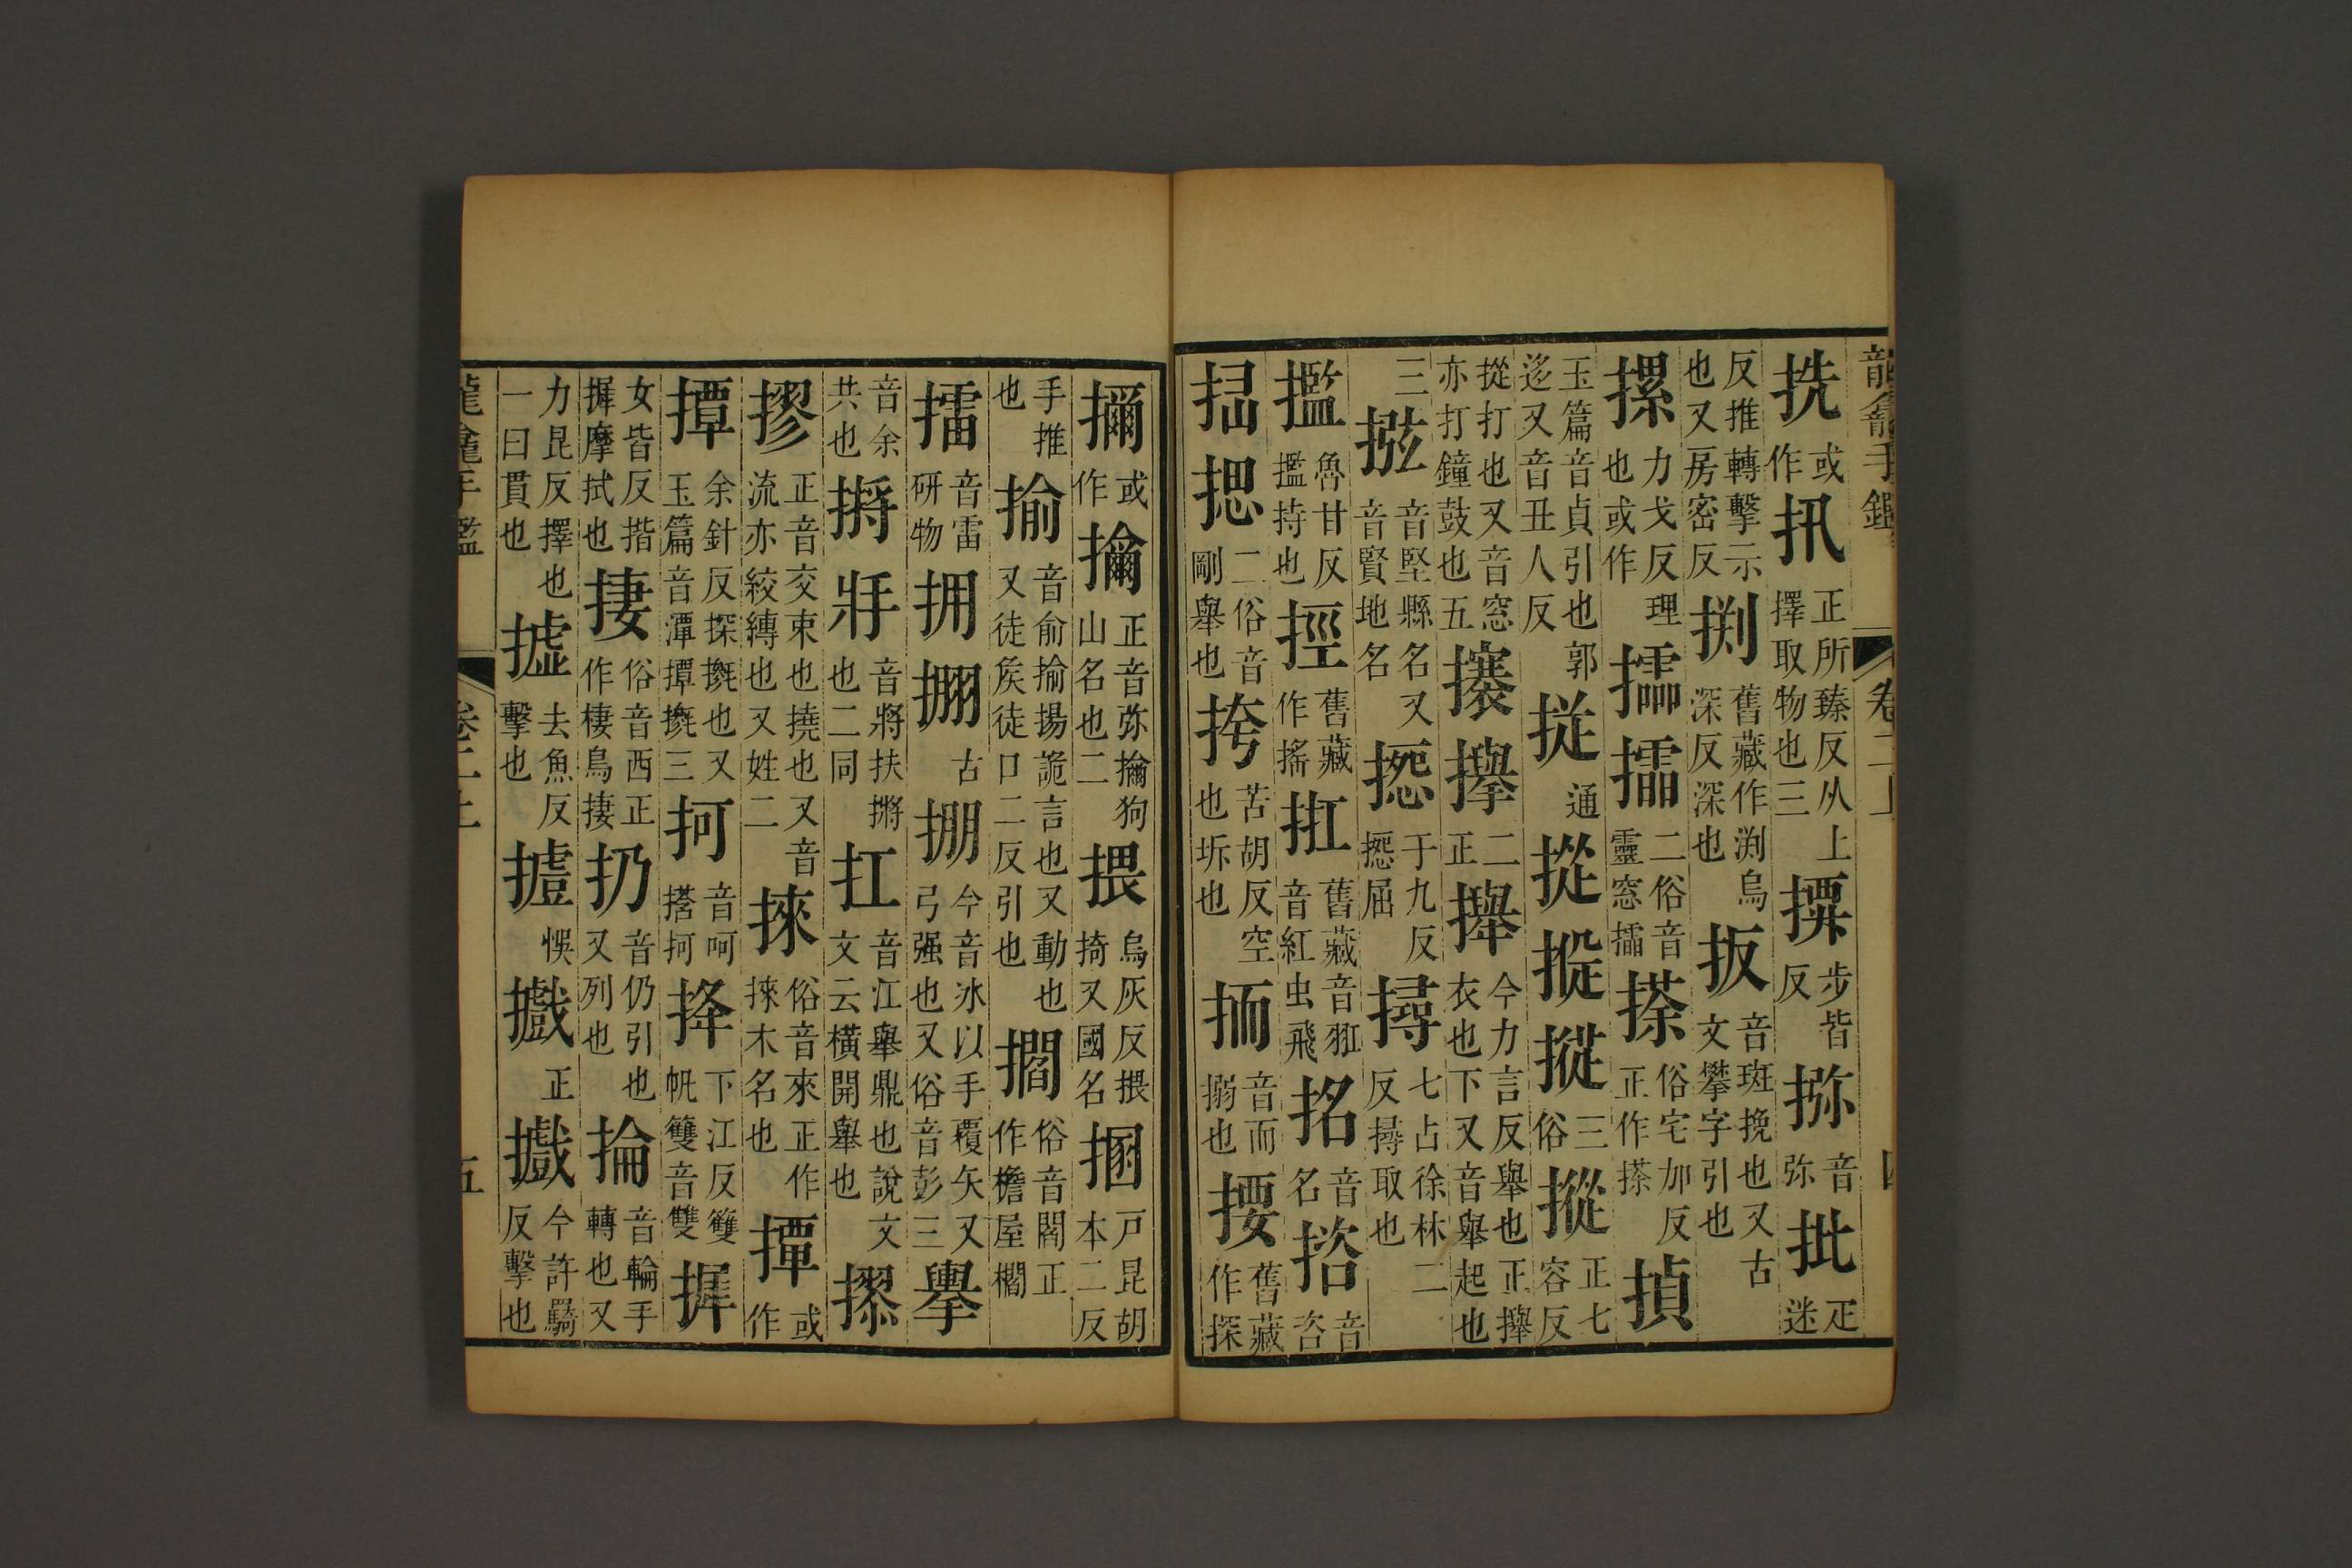 龍龕手鑑 卷二上 四
㧥或作扟正所臻反从上擇取物也三㩠步皆反㧺音弥批疋迷
反推轉擊示也又房密反㓨舊藏作渕烏深反深也扳音班挽也又古文攀字引也
摞力戈反理也或作擩㩕二俗音靈窓㩕搽俗宅加反正作搽揁
玉篇音貞引也郭迻又音丑人反𢓅通摐三俗摐正七容反
摐打也又音窓亦打鐘鼓也五攑二正攑今力言反舉也正攑衣也下又音舉起也
三㧋音堅縣名又音賢地名㨗于九反屈撏七占徐林二反撏取也
㩜魯甘反㩜持也挳舊藏作搖䱺舊藏音羾音紅虫飛拓音名㧱音咨
㧞揌二俗音剛舉也挎苦胡反空也坼也㧫音而搦也㨉舊藏作探
㩢或作㩢正音弥㩢狗山名也二揋烏灰反揋掎又國名掴戸昆胡本二反
手推也揄音俞揄揚詭言也又動也又徒矦徒口二反引也擱俗音閻正作檐屋櫩
擂音雷研物拥掤古掤今音冰以手覆矢又弓强也又俗音彭三擧
音余共也㨄牂音將扶㨄也二同扛音江舉鼎也說文云横開舉也摎
摎正音交束也撓也又音流亦絞縛也又姓二揀俗音來正作揀木名也撢或作
撢余針反探㨟也又玉篇音潭撢㨟三抲音呵㨯抲㧣下江反䉶帆雙音雙㨖
女皆反揩㨖摩拭也㨒俗音西正作棲鳥㨒扔音仍引也又列也掄音輪手轉也又
力昆反擇也一曰貫也㩀去魚反擊也㩀悞㩲正㩲今許羈反擊也
龍龕手鑑 卷二上 五